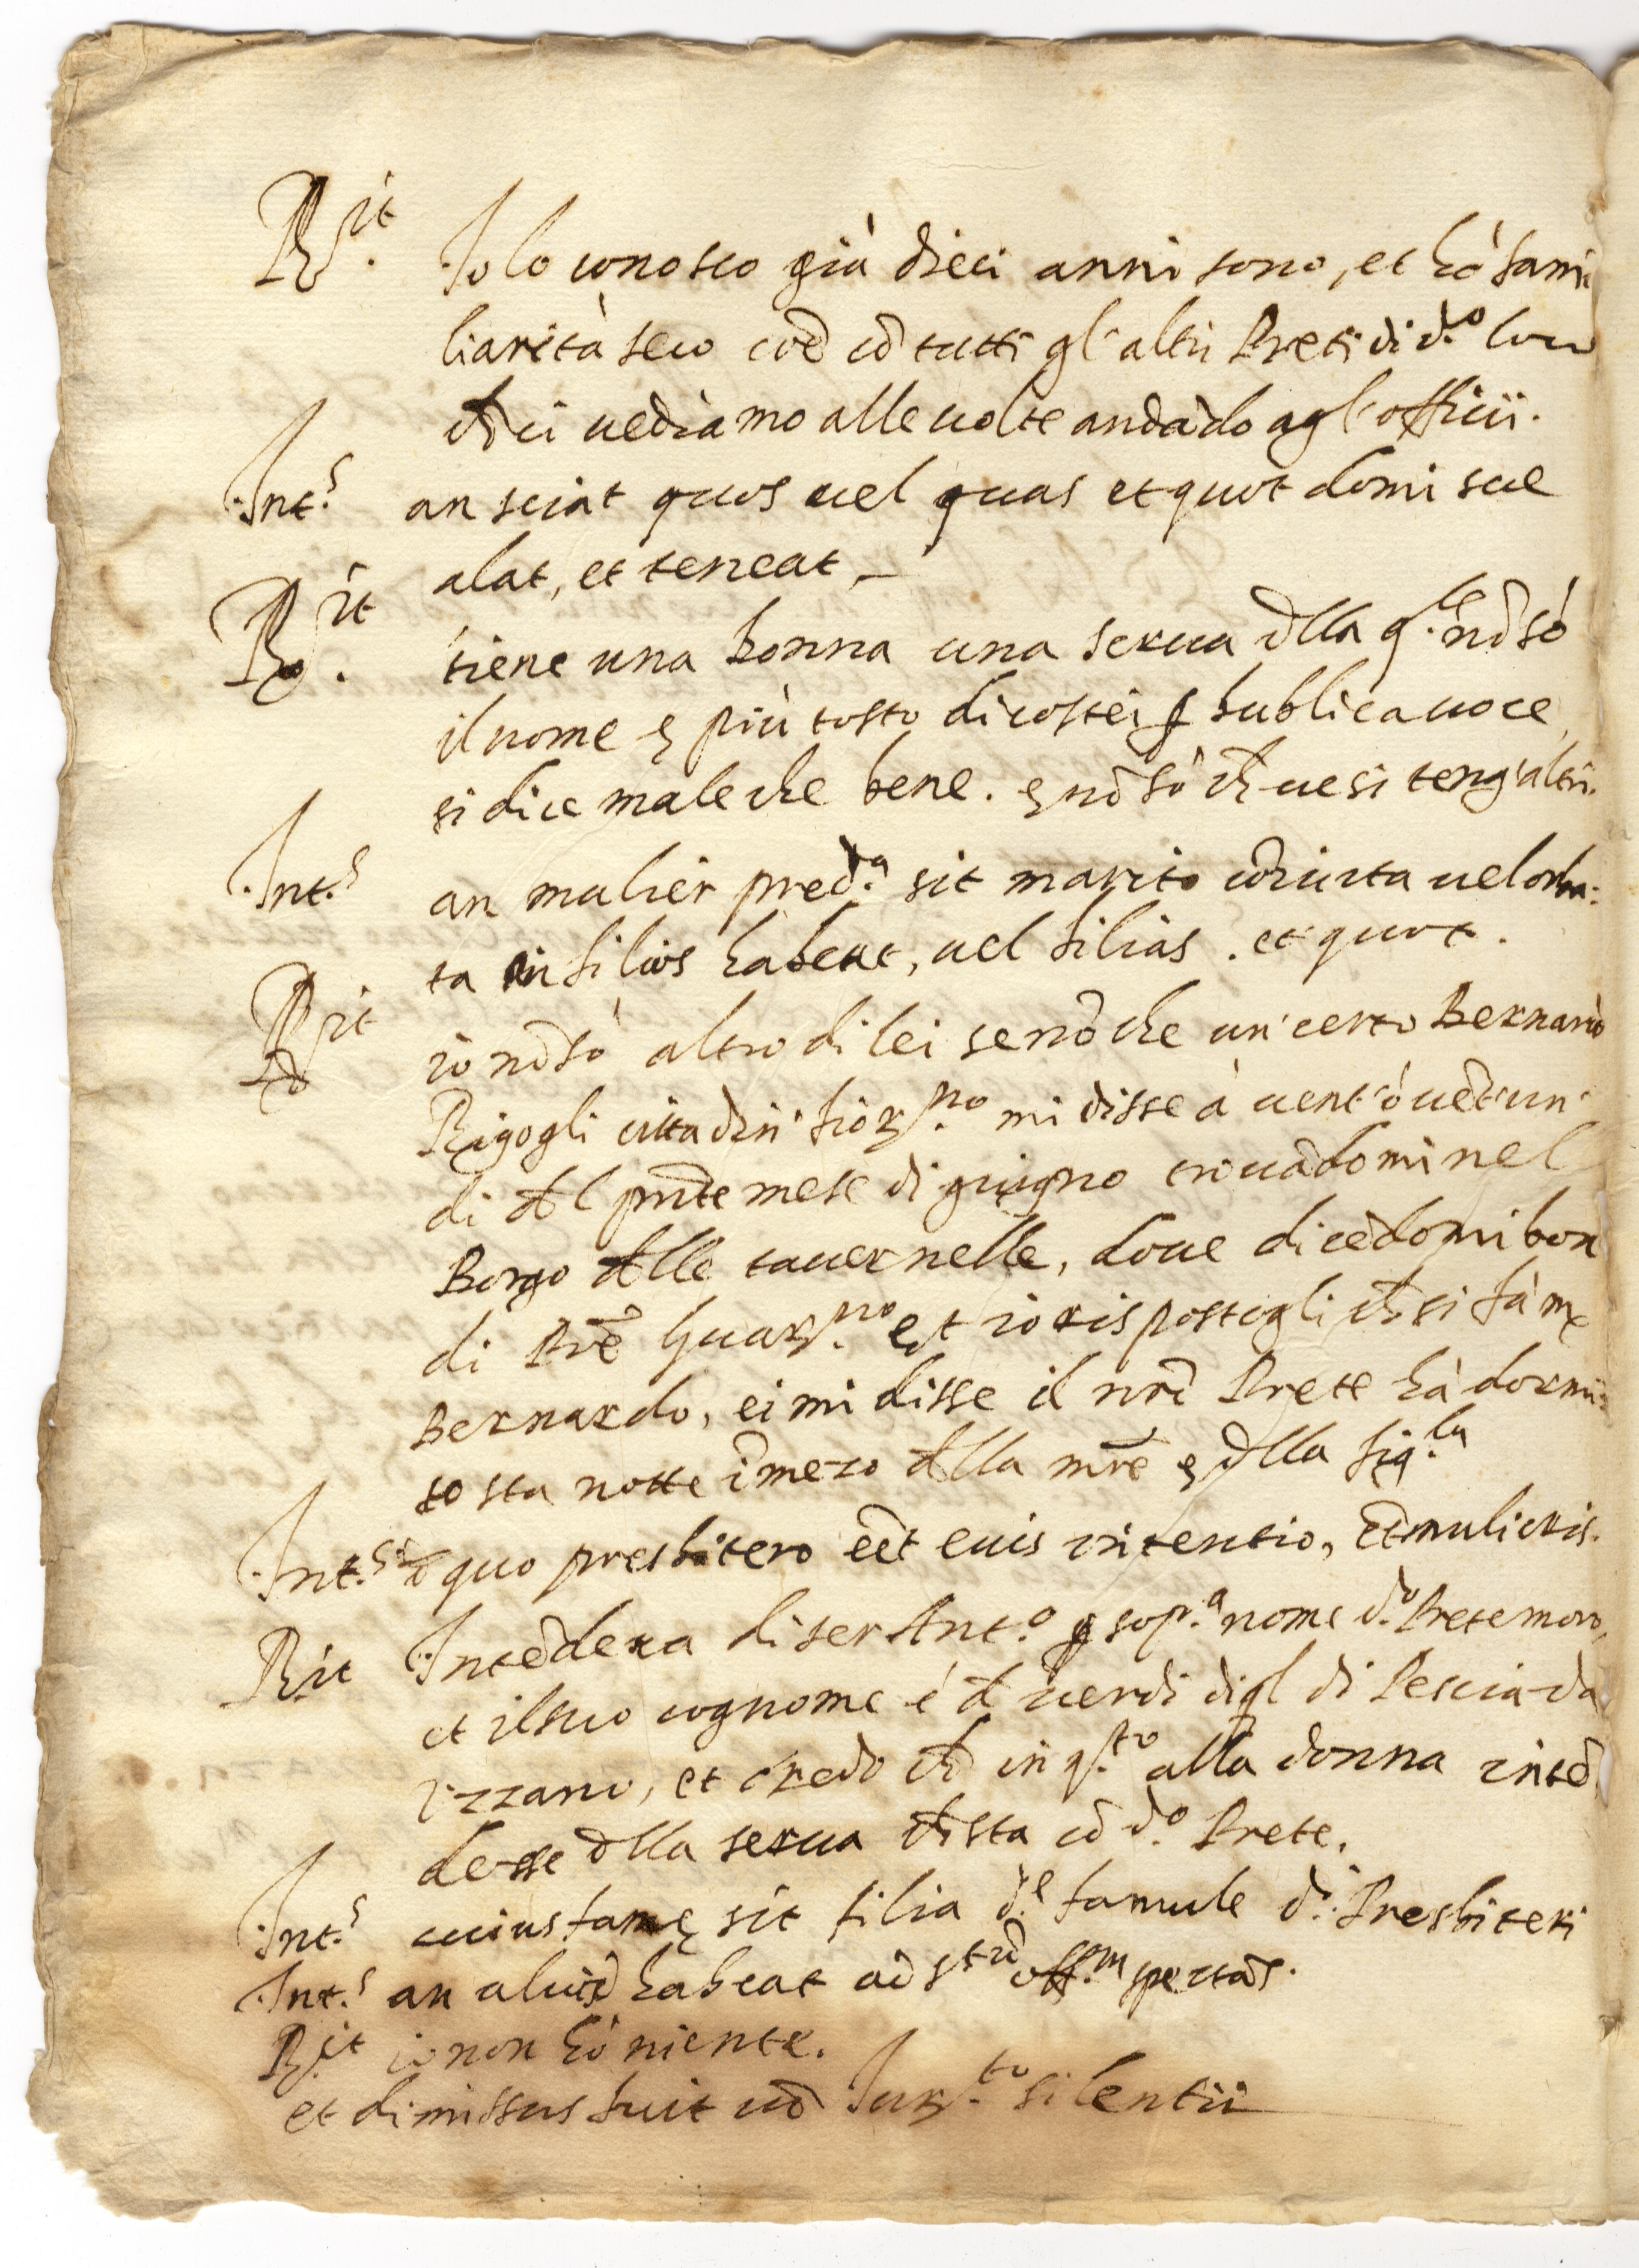 R.it Io lo conosco già dieci anni sono, et hò fami
liarità seco coē cō tutti gl'altri Preti di d.o loco
ch̄ ci uediamo alle uolte andādo agl'officii.
Int.s an sciat quos uel quas et quot domi sue
alat, et teneat,
R.it tiene una donna una serua d̄lla q.le nō sò
il nome e più tosto di costei p̱ publica uoce
si dice male che bene. e nō sò ch̄ ue si teng'altri.
Int.s an mulier pred.a sit marito cōiucta uel orba:
ta an filios habeat, uel filias. et quot.
R.it io nō sò altro di lei se nō che un' certo Bernardo
Rigogli cittadin' fior.no mi disse à uent'ò uēt'un'
di d̄l pn̄te mese di giugno trouādomi nel
Borgo d̄lle tauernelle, doue dicēdomi bon
di Prē Guar.no et io rispostogli ch̄ si fà m.
Bernardo, ei mi disse il nrō Prete hà dormi:
to sta notte ī mezo d̄lla mrē e d̄lla fig.la
Int.s d̄ quo presbitero eēt eius intentio, et mulieris.
R.it Intēdeua di ser Ant.o p̱ sop.a nome d.o Prete moro,
et il suo cognome é d̄ uerdi digl di Pescia da
izzano, et credo ch̄ in q.to alla donna intē
desse d̄lla serua ch̄ sta cō d.o Prete.
Int.s cuius fame sit filia d.e famule d.i Presbiteri
Int.s an aliud habeat ad s.tū off.m spectās.
R.it io non hò niente.
et dimissus fuit cū Iur.to silentii